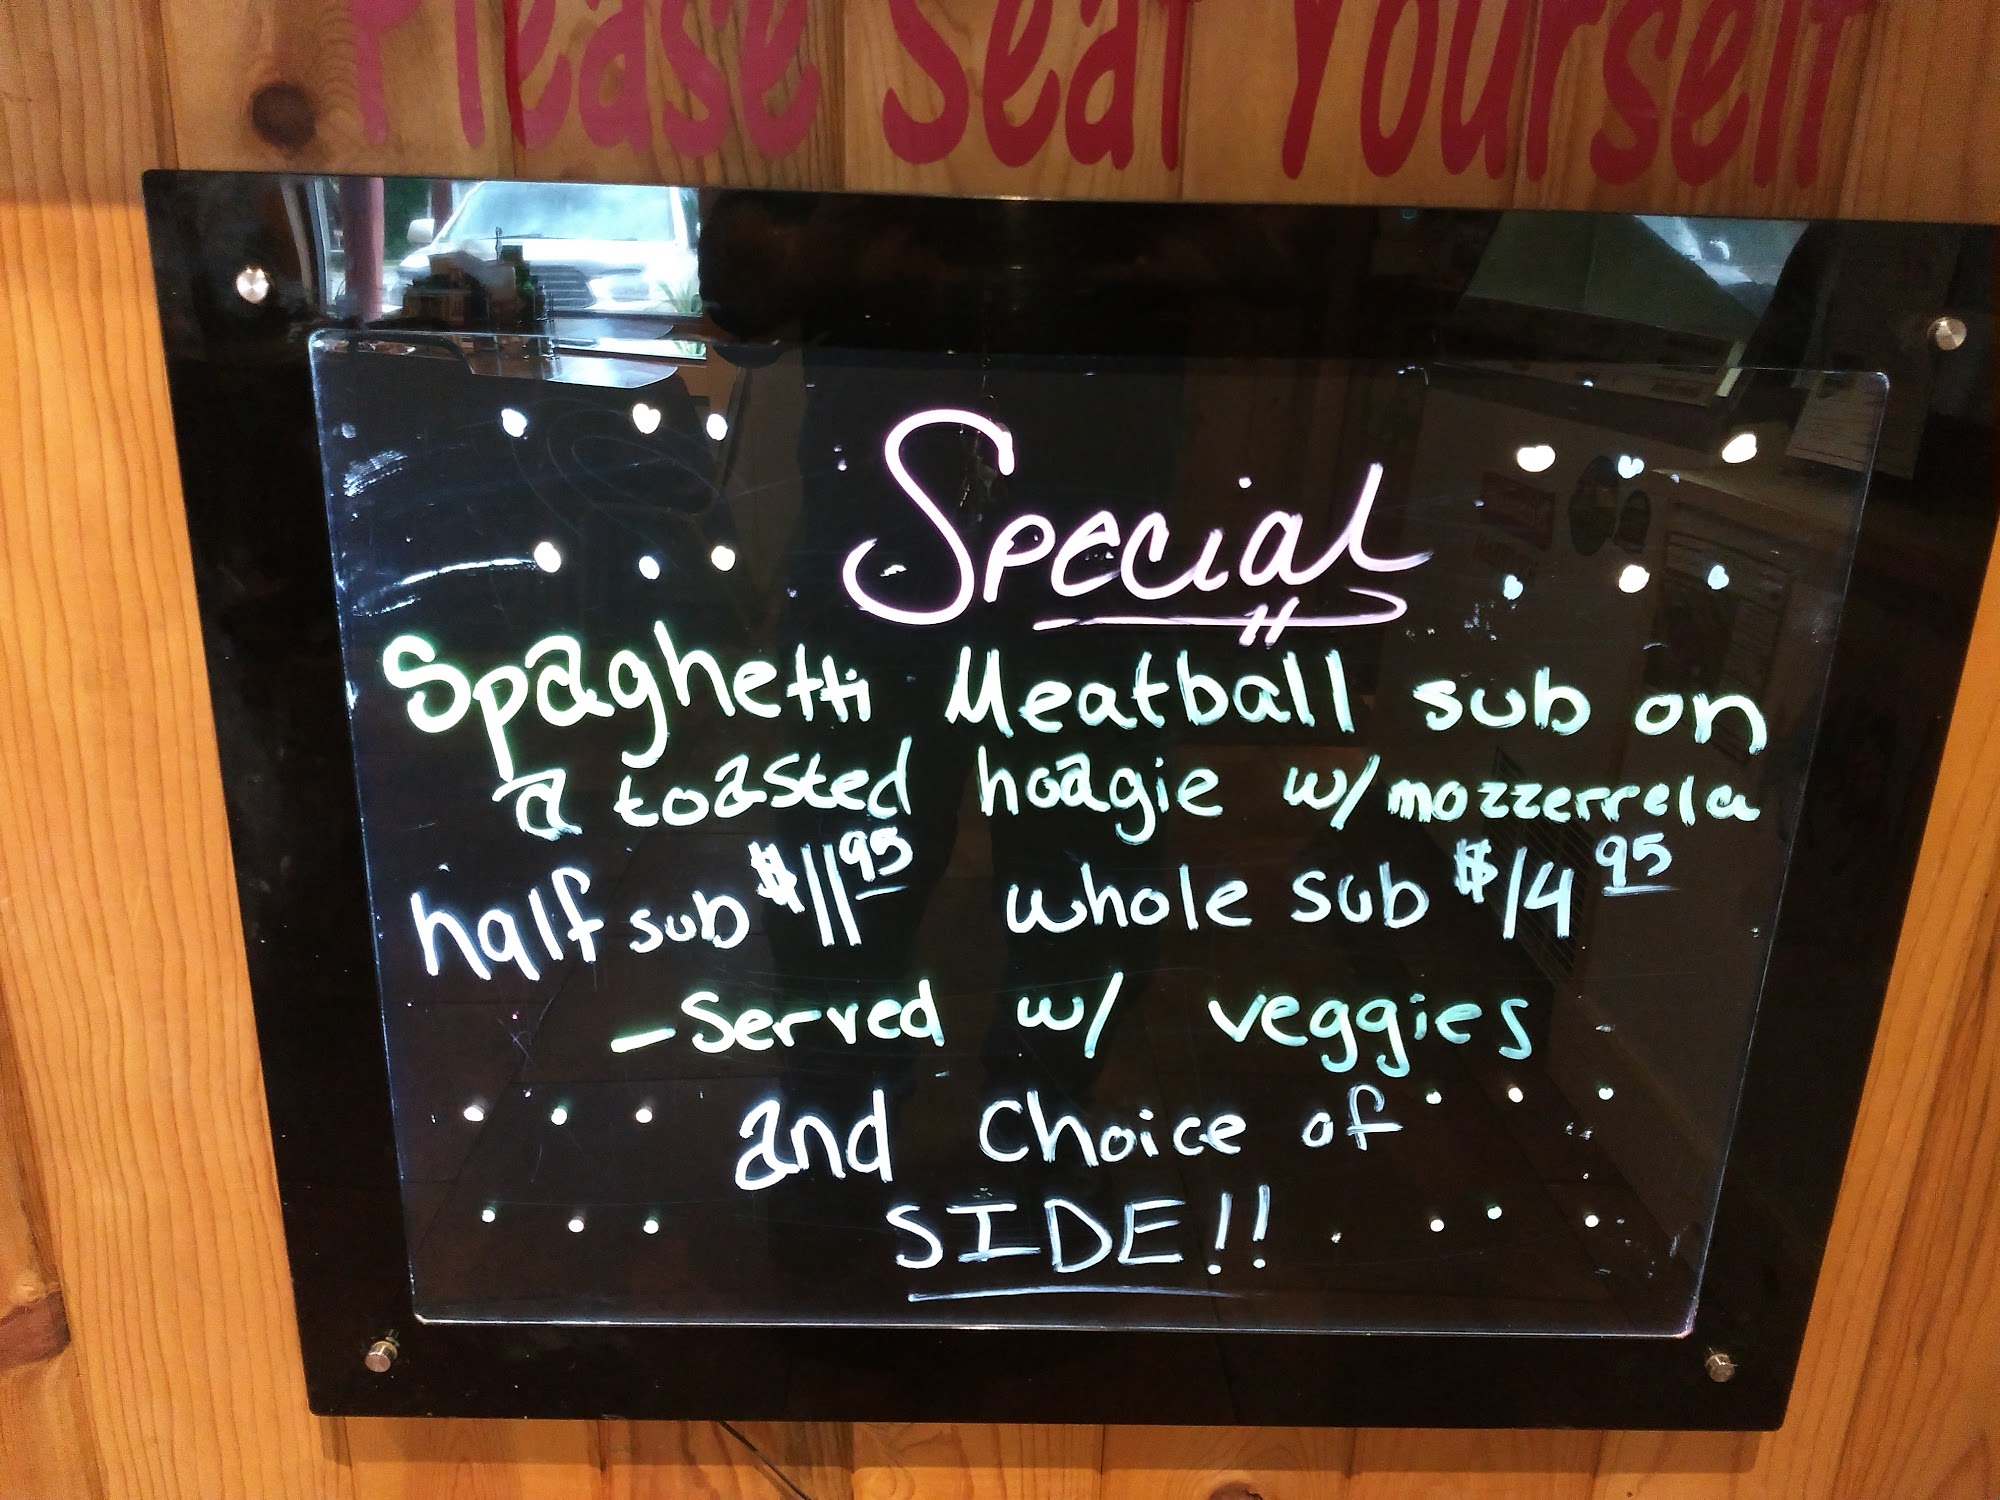 Please Seat Yourself
Special
Spaghetti Meatball sub on
a toasted hoagie w/ mozzerrela
half sub $11.95 whole sub $14.95
- Served w/ veggies
and Choice of
SIDE!!